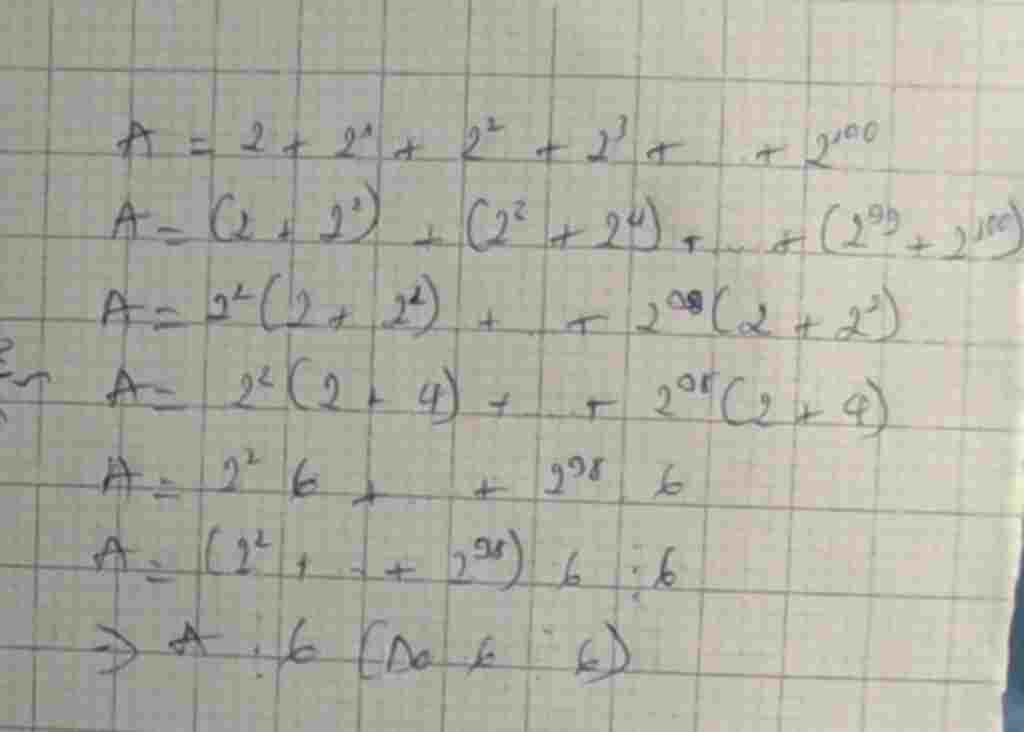 A = 2 + 2² + 2² + 2³ + ... + 2¹⁰⁰
A = (2 + 2²) + (2² + 2⁴) + ... + (2⁹⁹ + 2¹⁰⁰)
A = 2²(2 + 2²) + ... + 2⁹⁸(2 + 2²)
A = 2²(2 + 4) + ... + 2⁹⁸(2 + 4)
A = 2² 6 + + 2⁹⁸ 6
A = (2² + ... + 2⁹⁸) 6 ⋮ 6
=> A ⋮ 6 (Do 6 ⋮ 6)